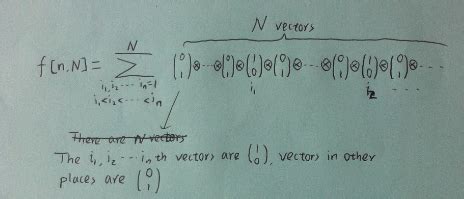 N vectors
f[n,N] = \sum_{i_1, i_2 \cdots i_n = 1, i_1 < i_2 < \cdots < i_n}^{N} \binom{0}{1} ⊗ ⋯ ⊗ \binom{0}{1} ⊗ \binom{1}{0} ⊗ \binom{0}{1} ⊗ ⋯ ⊗ \binom{0}{1} ⊗ \binom{1}{0} ⊗ \binom{0}{1} ⊗ ⋯
i_1 i_2 ⋯
There are N vectors
The i_1, i_2 ⋯ i_n th vectors are \binom{1}{0}, vectors in other
places are \binom{0}{1}